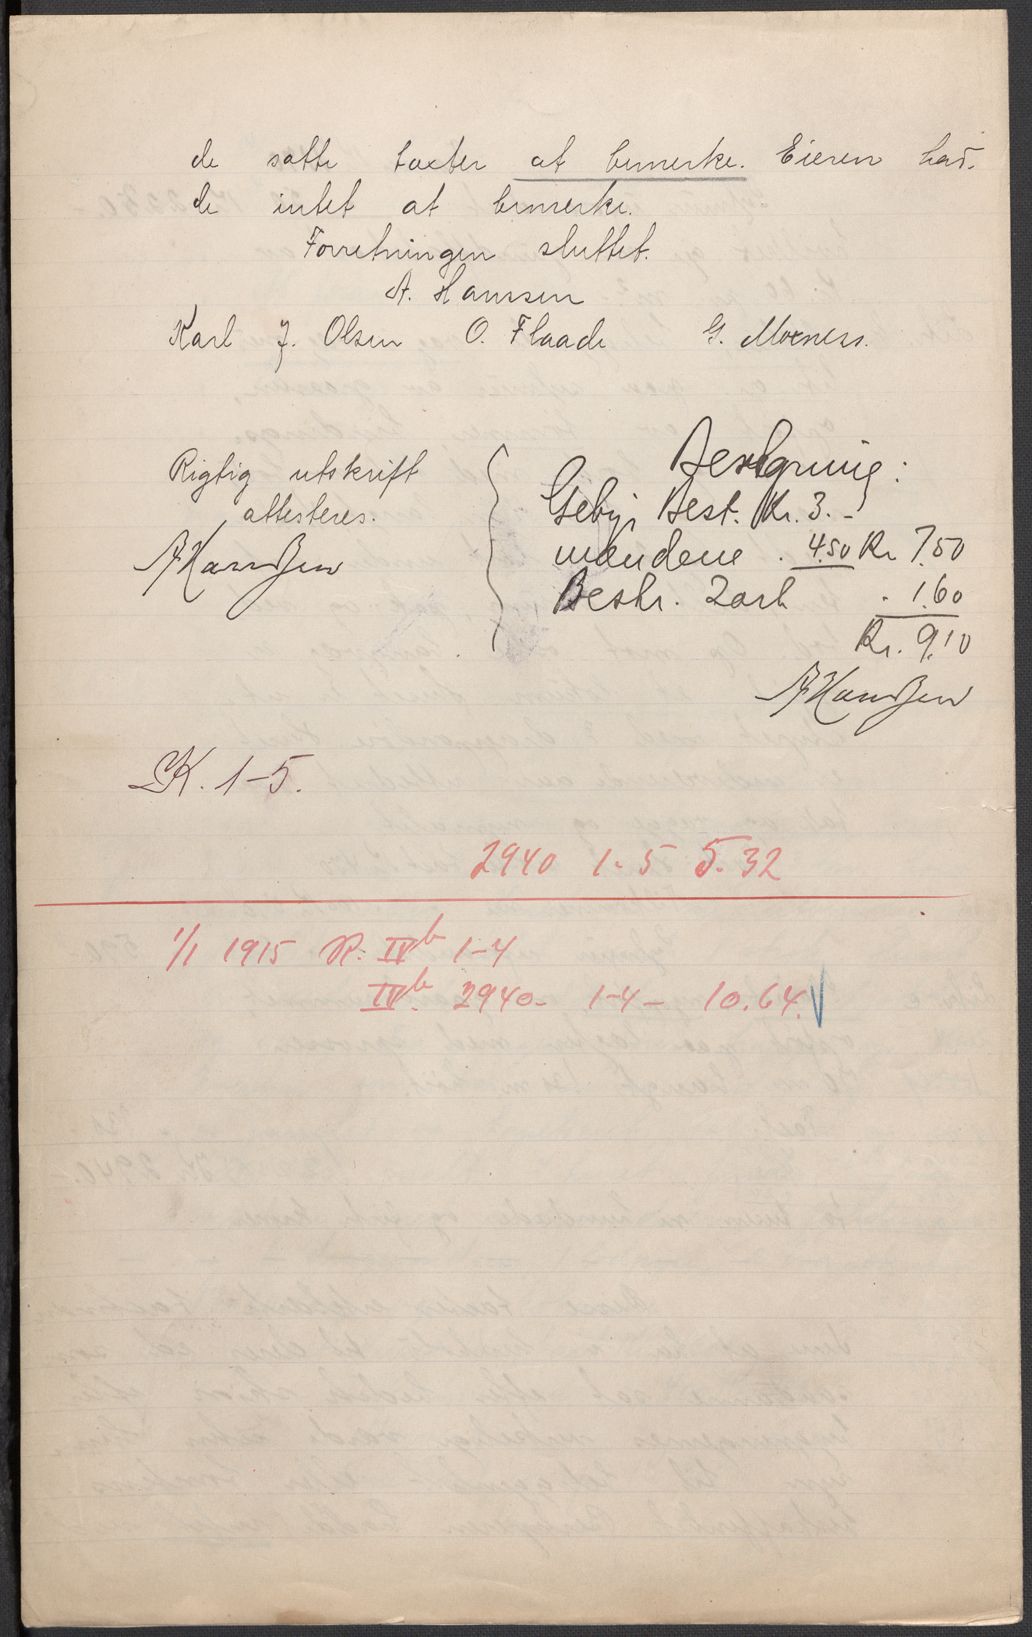 de satte taxter at bemerke. Eieren had-
de intet at bemerke.
Forretningen sluttet.
A. Hansen
Karl J. Olsen O. Flaade G. Moeness.
Rigtig utskrift
attesteres.
AHansen
Beregning:
Gebyr Best. Kr. 3.-
mændene . 4.50 Kr 7.50
Bestr. 2 ark . 1.60
Kr. 9.10
AHansen
K. 1-5.
2940 1-5 5.32
1/1 1915 R: IVb 1-4
IVb. 2940- 1-4- 10.64.